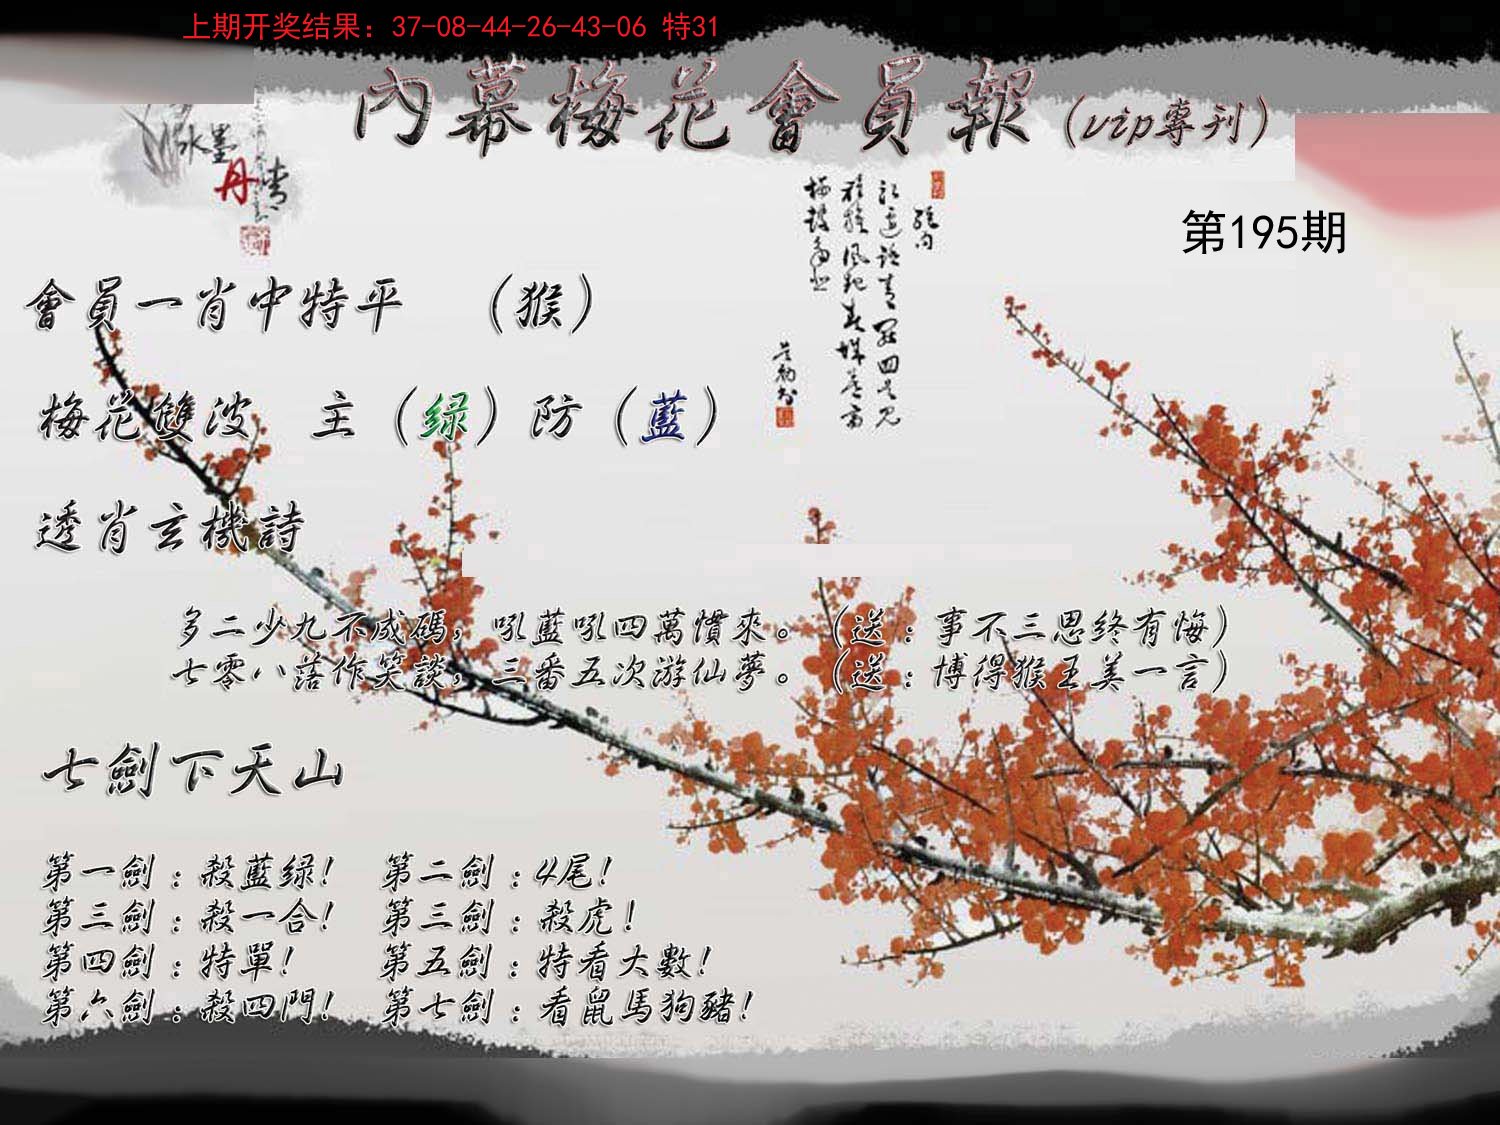 上期开奖结果：37-08-44-26-43-06 特31
內幕梅花會員報(vip專刊)
水墨
丹青
第195期
會員一肖中特平 （猴）
梅花雙波 主（绿）防（藍）
透肖玄機詩
多二少九不成碼，吼藍吼四萬慣來。（送：事不三思终有悔）
七零八落作笑談，三番五次游仙夢。（送：博得猴王美一言）
七劍下天山
第一劍：殺藍绿! 第二劍：4尾!
第三劍：殺一合! 第三劍：殺虎!
第四劍：特單! 第五劍：特看大數!
第六劍：殺四門! 第七劍：看鼠馬狗豬!